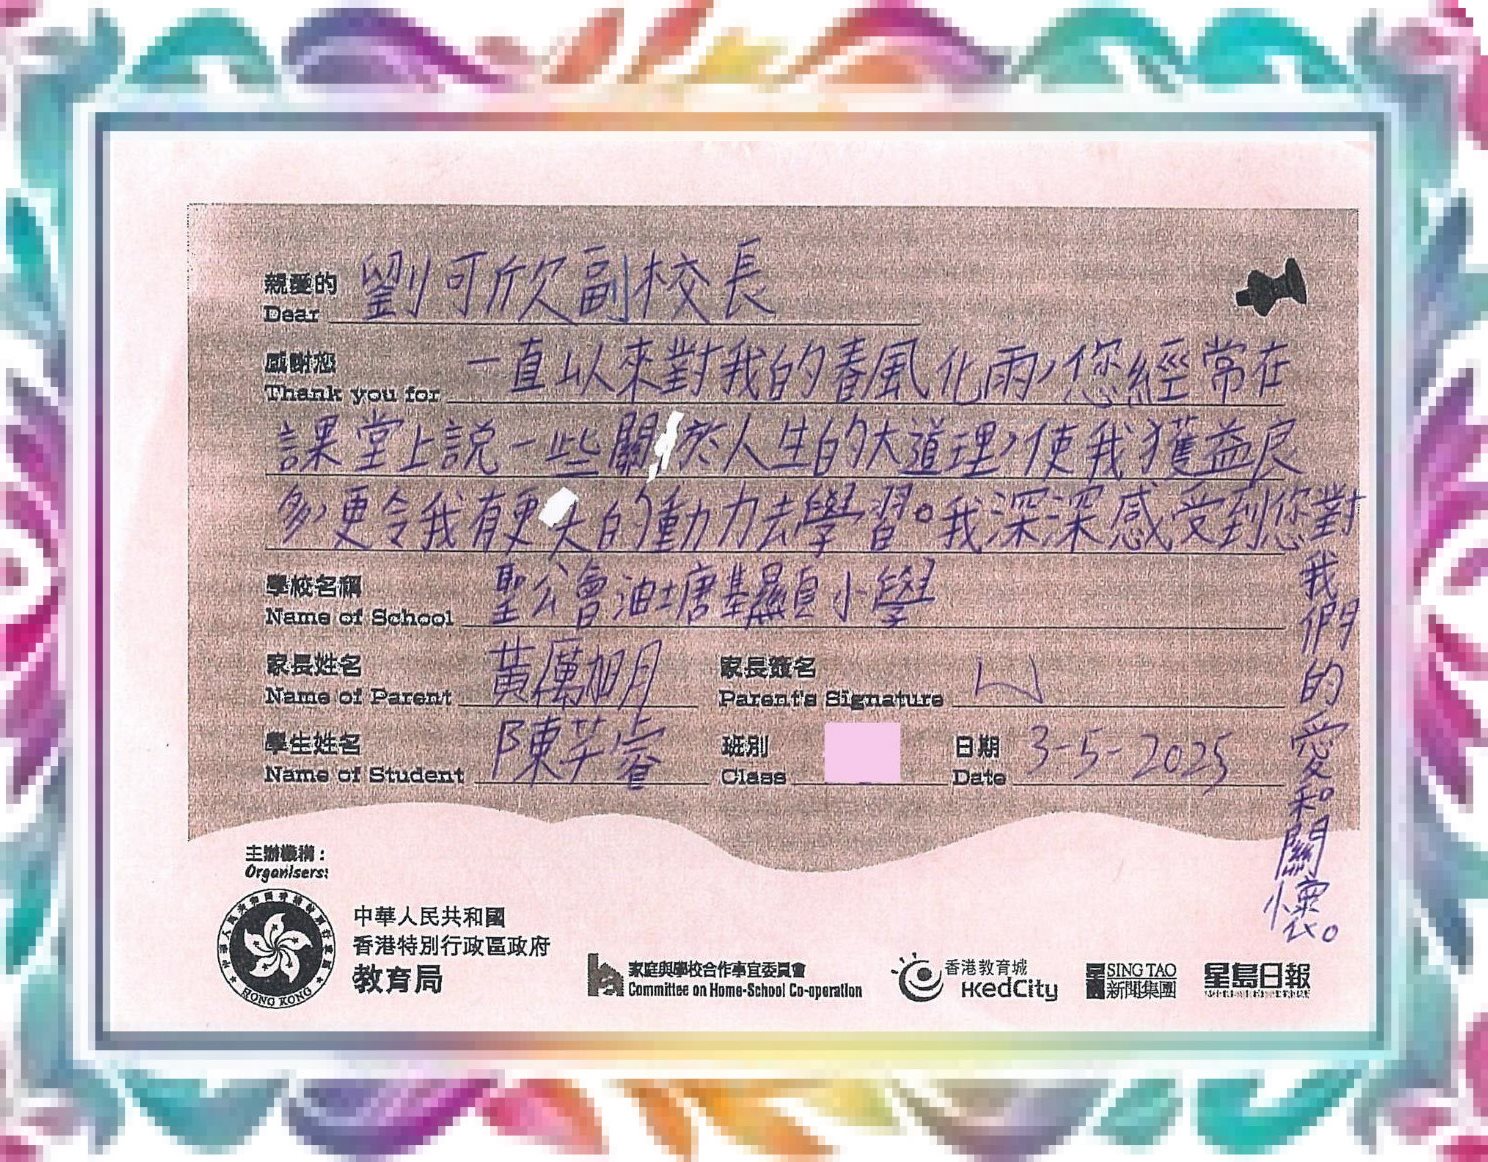 親愛的 劉可欣副校長
Dear
感謝您 一直以來對我的春風化雨,您經常在
Thank you for
課堂上說一些關於人生的大道理,使我獲益良
多,更令我有更大的動力去學習。我深深感受到您對
我們的愛和關懷。
學校名稱 聖公會油塘基顯小學
Name of School
家長姓名 黃厲明 家長簽名
Name of Parent Parent's Signature
學生姓名 陳芊睿 班別 日期 3-5-2025
Name of Student Class Date
主辦機構:
Organisers:
中華人民共和國
香港特別行政區政府
教育局
HONG KONG
家庭與學校合作事宜委員會
Committee on Home-School Co-operation
香港教育城
HKedCity
SING TAO
新聞集團
星島日報